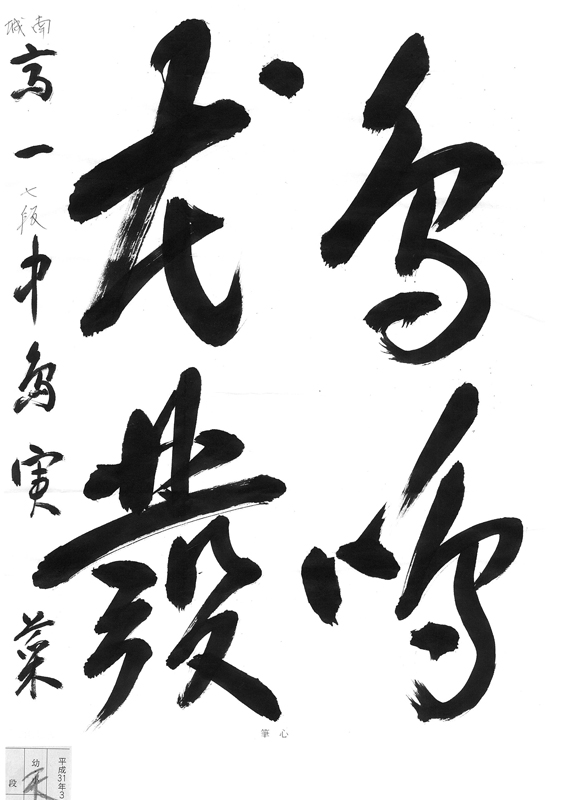 鳥鳴
花發
南城
高一 七段 中島実菜
筆心
平成31年3
幼
段